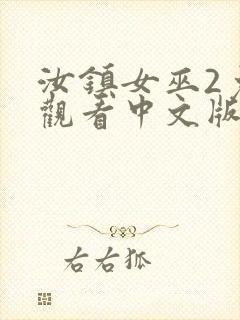 汝鎮女巫2
觀看中文版
右右狐